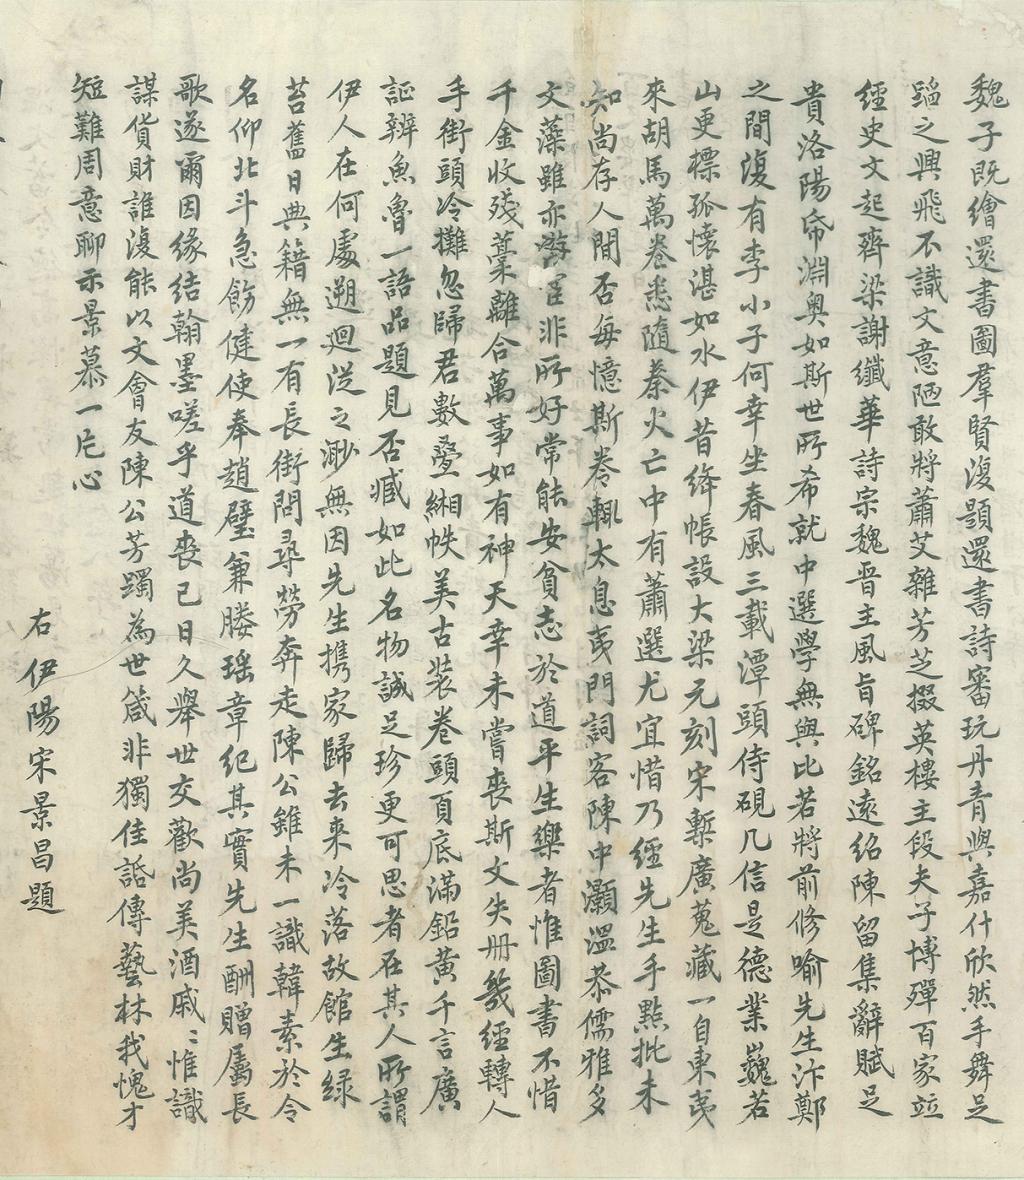 魏子既繪還書圖羣賢復題還書詩審玩丹青與嘉什欣然手舞足
蹈之興飛不識文意陋敢將蕭艾雜芳芝掇英樓主段夫子博殫百家竝
經史文起齊梁謝纖華詩宗魏晉主風旨碑銘遠紹陳留集辭賦足
貴洛陽帋淵奧如斯世所希就中選學無與比若將前修喻先生汴鄭
之間復有李小子何幸坐春風三載潭頭侍硯几信是德業巍若
山更標孤懷湛如水伊昔絳帳設大梁元刻宋槧廣蒐藏一自東夷
來胡馬萬卷悉隨秦火亡中有蕭選尤宜惜乃經先生手點批未
知尚存人間否每憶斯卷輒太息夷門詞客陳中灝溫恭儒雅多
文藻雖亦游宦非所好常能安貧志於道平生樂者惟圖書不惜
千金收殘藁離合萬事如有神天幸未嘗喪斯文失冊幾經轉人
手街頭冷攤忽歸君數疊緗帙美古裝卷頭頁底滿鉛黃千言廣
証辨魚魯一語品題見否臧如此名物誠足珍更可思者在其人所謂
伊人在何處遡迴從之渺無因先生携家歸去來冷落故館生綠
苔舊日典籍無一有長街問尋勞奔走陳公雖未一識韓素於令
名仰北斗急飭健使奉趙璧兼媵瑶章紀其實先生酬贈屬長
歌遂爾因緣結翰墨嗟乎道喪已日久舉世交歡尚美酒戚〻惟識
謀貨財誰復能以文會友陳公芳躅為世箴非獨佳話傳藝林我愧才
短難周意聊示景慕一片心
右伊陽宋景昌題